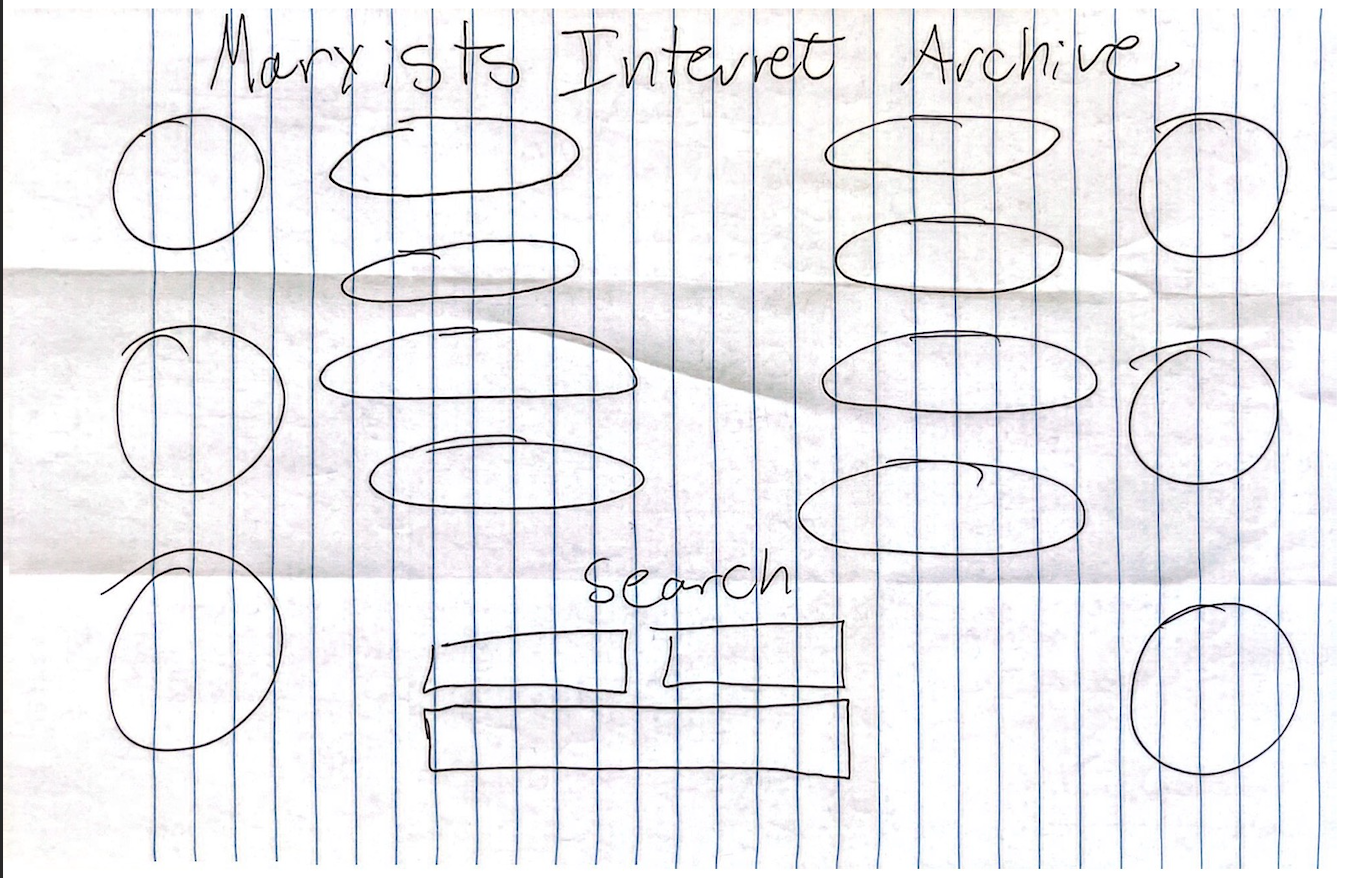 Marxists Internet Archive
search